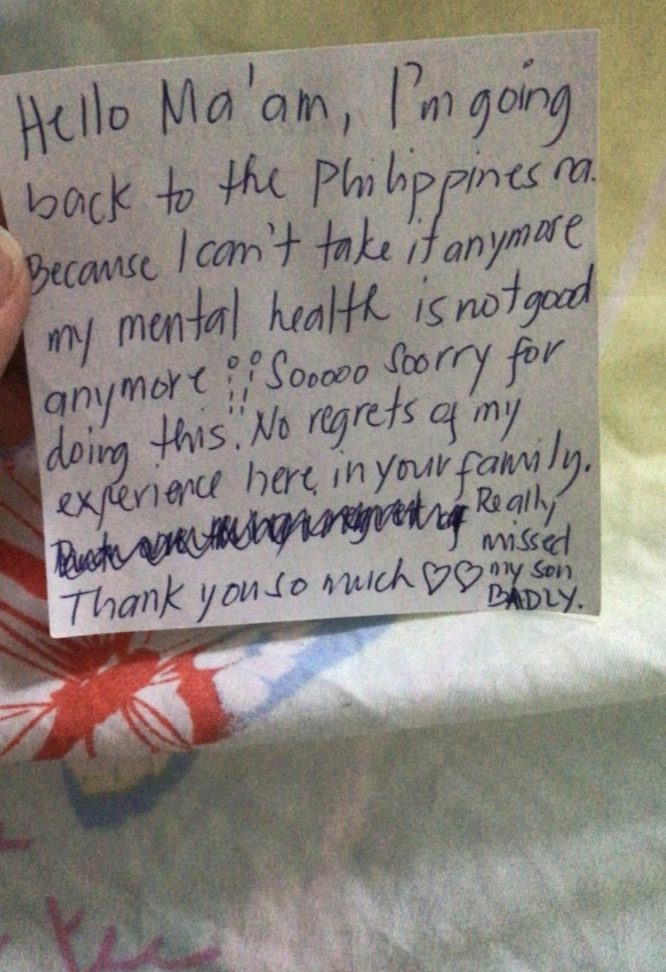 Hello Ma'am, I'm going
back to the Philippines na.
Because I can't take it anymore
my mental health is not good
anymore !! Sooooo Soorry for
doing this. No regrets of my
experience here in your family.
Really
missed
my son
BADLY.
Thank you so much ♡♡